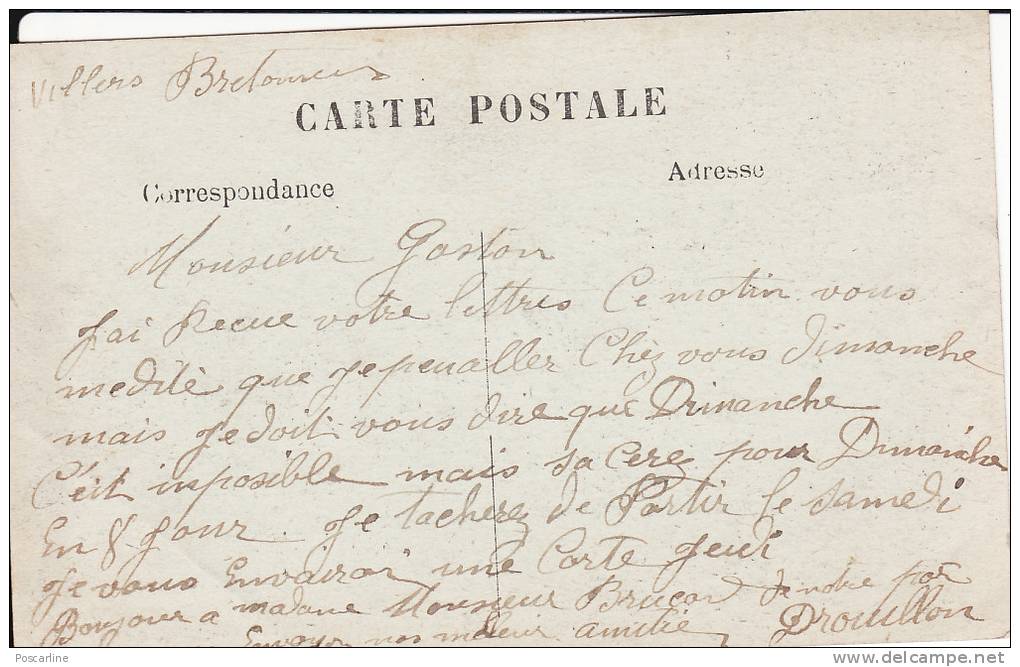 Villers Bretonneux
CARTE POSTALE
Correspondance
Adresse
Monsieur Gaston
J'ai Recue votre lettres Ce matin vous
medite que Je peu aller Chez vous dimanche
mais Je doit vous dire que Dimanche
C'eit imposible mais sa Cerez pour Dimanche
En 8 Jour. Je tacherez de Partir le Samedi
Je vous Envairai une Carte Jeudi
Bonjour a madame Monsieur Brucar de notre par
Envoyer nos melleur amitie Drouillon
Poscarline
www.delcampe.net